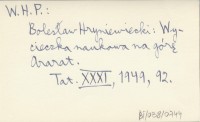 W.H.P.:
Bolesław Hryniewiecki: Wy-
cieczka naukowa na górę
Ararat.
Tat. XXXI, 1949, 92.